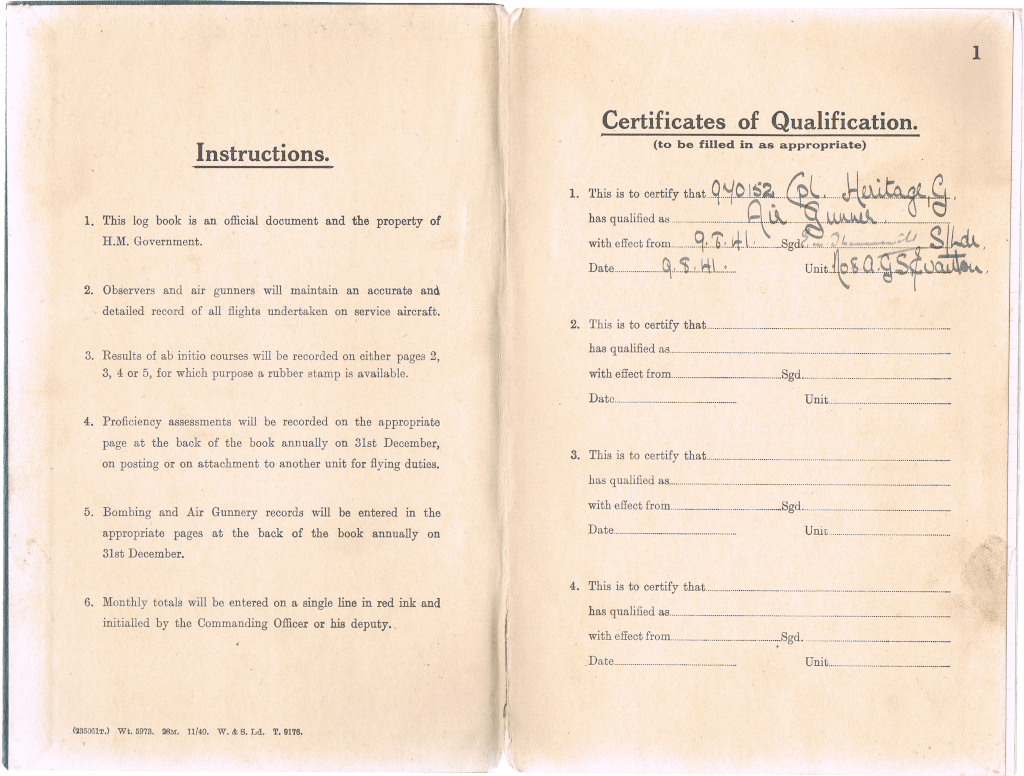 Instructions.
1. This log book is an official document and the property of
H.M. Government.
2. Observers and air gunners will maintain an accurate and
detailed record of all flights undertaken on service aircraft.
3. Results of ab initio courses will be recorded on either pages 2,
3, 4 or 5, for which purpose a rubber stamp is available.
4. Proficiency assessments will be recorded on the appropriate
page at the back of the book annually on 31st December,
on posting or on attachment to another unit for flying duties.
5. Bombing and Air Gunnery records will be entered in the
appropriate pages at the back of the book annually on
31st December.
6. Monthly totals will be entered on a single line in red ink and
initialled by the Commanding Officer or his deputy.
(235051T.) Wt. 5973. 28M. 11/40. W. & S. Ld. T. 9176.
1
Certificates of Qualification.
(to be filled in as appropriate)
1. This is to certify that 970152 Cpl. Heritage G.
has qualified as Air Gunner.
with effect from 9.8.41. Sgd. S/Ldr.
Date 9.8.41. Unit No 8 A.G.S. Evanton.
2. This is to certify that
has qualified as
with effect from Sgd.
Date Unit
3. This is to certify that
has qualified as
with effect from Sgd.
Date Unit
4. This is to certify that
has qualified as
with effect from Sgd.
Date Unit